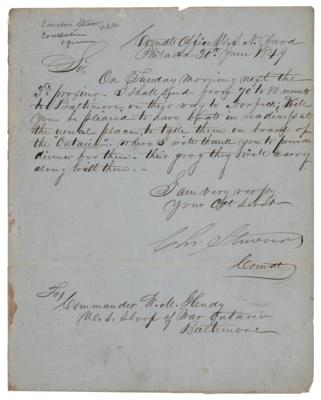 Commodore Stewart U.S.N.
Constitution
Comdts Office U.S. N. Yard
Philada 30th June 1849
Sir,
On Tuesday Morning next the
3rd proximo. I shall send from 70 to 80 recruits
to Baltimore, on their way to Norfolk, Will
You be pleased to have boats in readiness at
the usual place, to take them on board of
the Ontario. where I will thank you to provide
dinner for them. their grog they will carry
along with them. -
I am very respy
Your Obt Servt
Chs Stewart
Comdt
To
Commander W. M.
U. S. Sloop of War Ontario
Baltimore